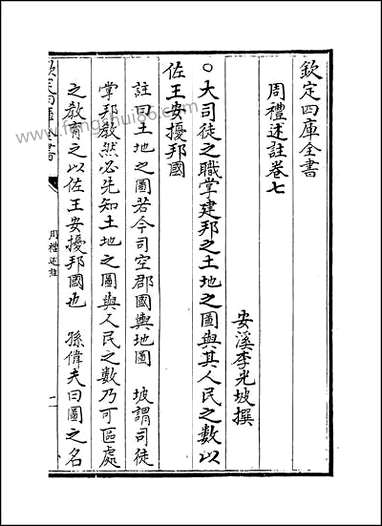 欽定四庫全書
周禮述註卷七
安溪李光坡撰
○大司徒之職掌建邦之土地之圖與其人民之數以
佐王安擾邦國
註曰土地之圖若今司空郡國輿地圖 坡謂司徒
掌邦教然必先知土地之圖與人民之數乃可區處
之教育之以佐王安擾邦國也 孫偉夫曰圖之名
欽定四庫全書
周禮述註
一